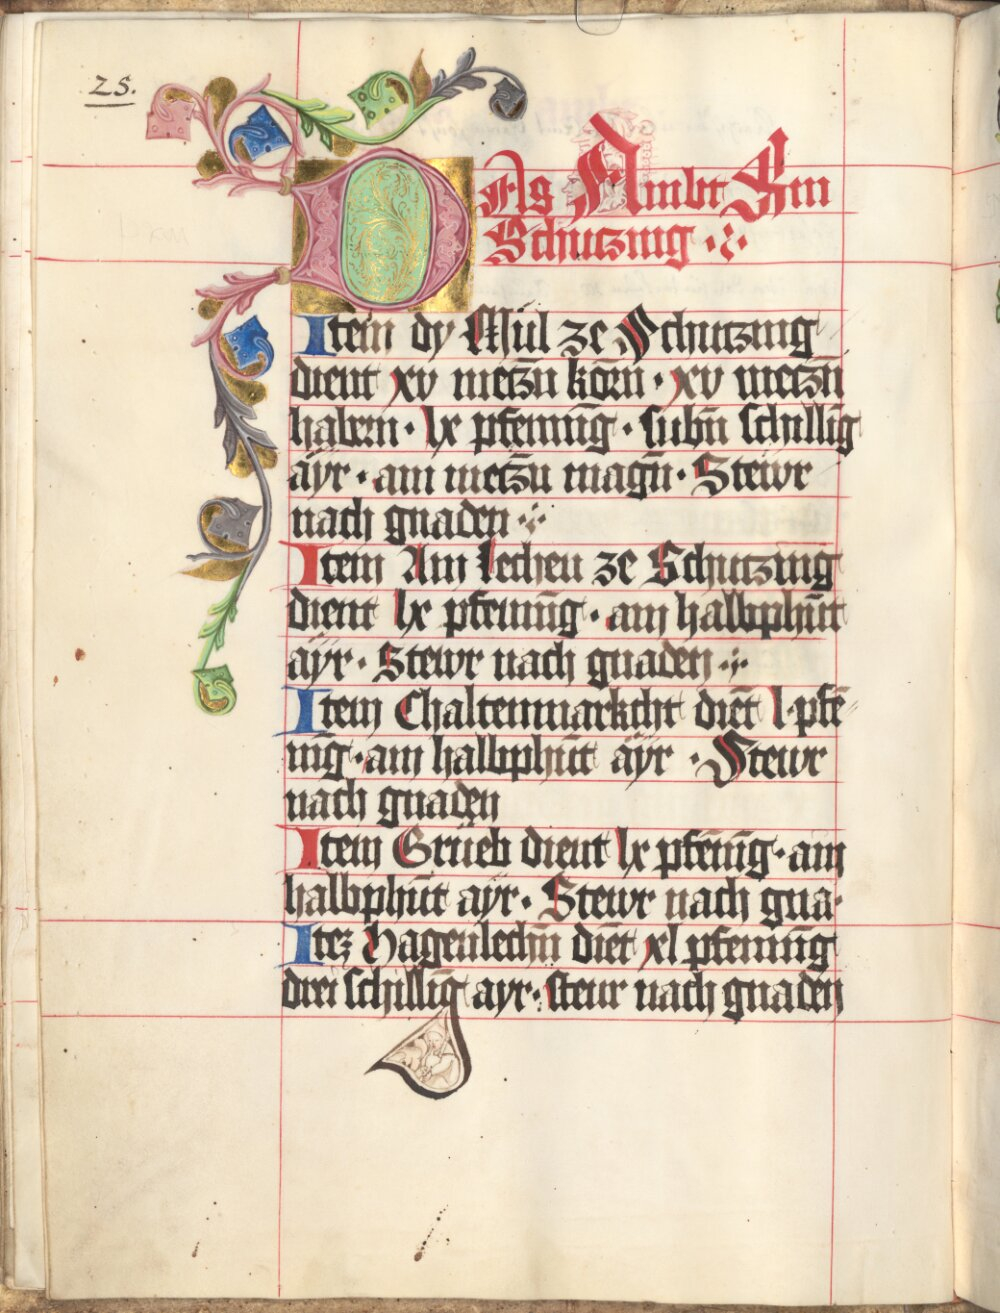 25.
DAs Ambt Am
Schutzing
Item dy Mül ze Schutzing
dient xv metzn̄ korn · xv metzn̄
habern · lx pfenning · subn̄ schillīg
äyr · ain metzn̄ magn̄ · Stewr
nach gnaden
Item Ain Lechen ze Schutzing
dient lx pfenīng · ain halbphūt
äyr · Stewr nach gnaden
Item Chaltenmarkcht diēt l pfē
nīg · ain halbphūt äyr · Stewr
nach gnaden
Item Grüeb dient lx pfenīng · ain
halbphūt äyr · Stewr nach gna·
Itez Hagenlechn̄ diēt xl pfennīg
drei schillīg ayr · steur nach gnadēn